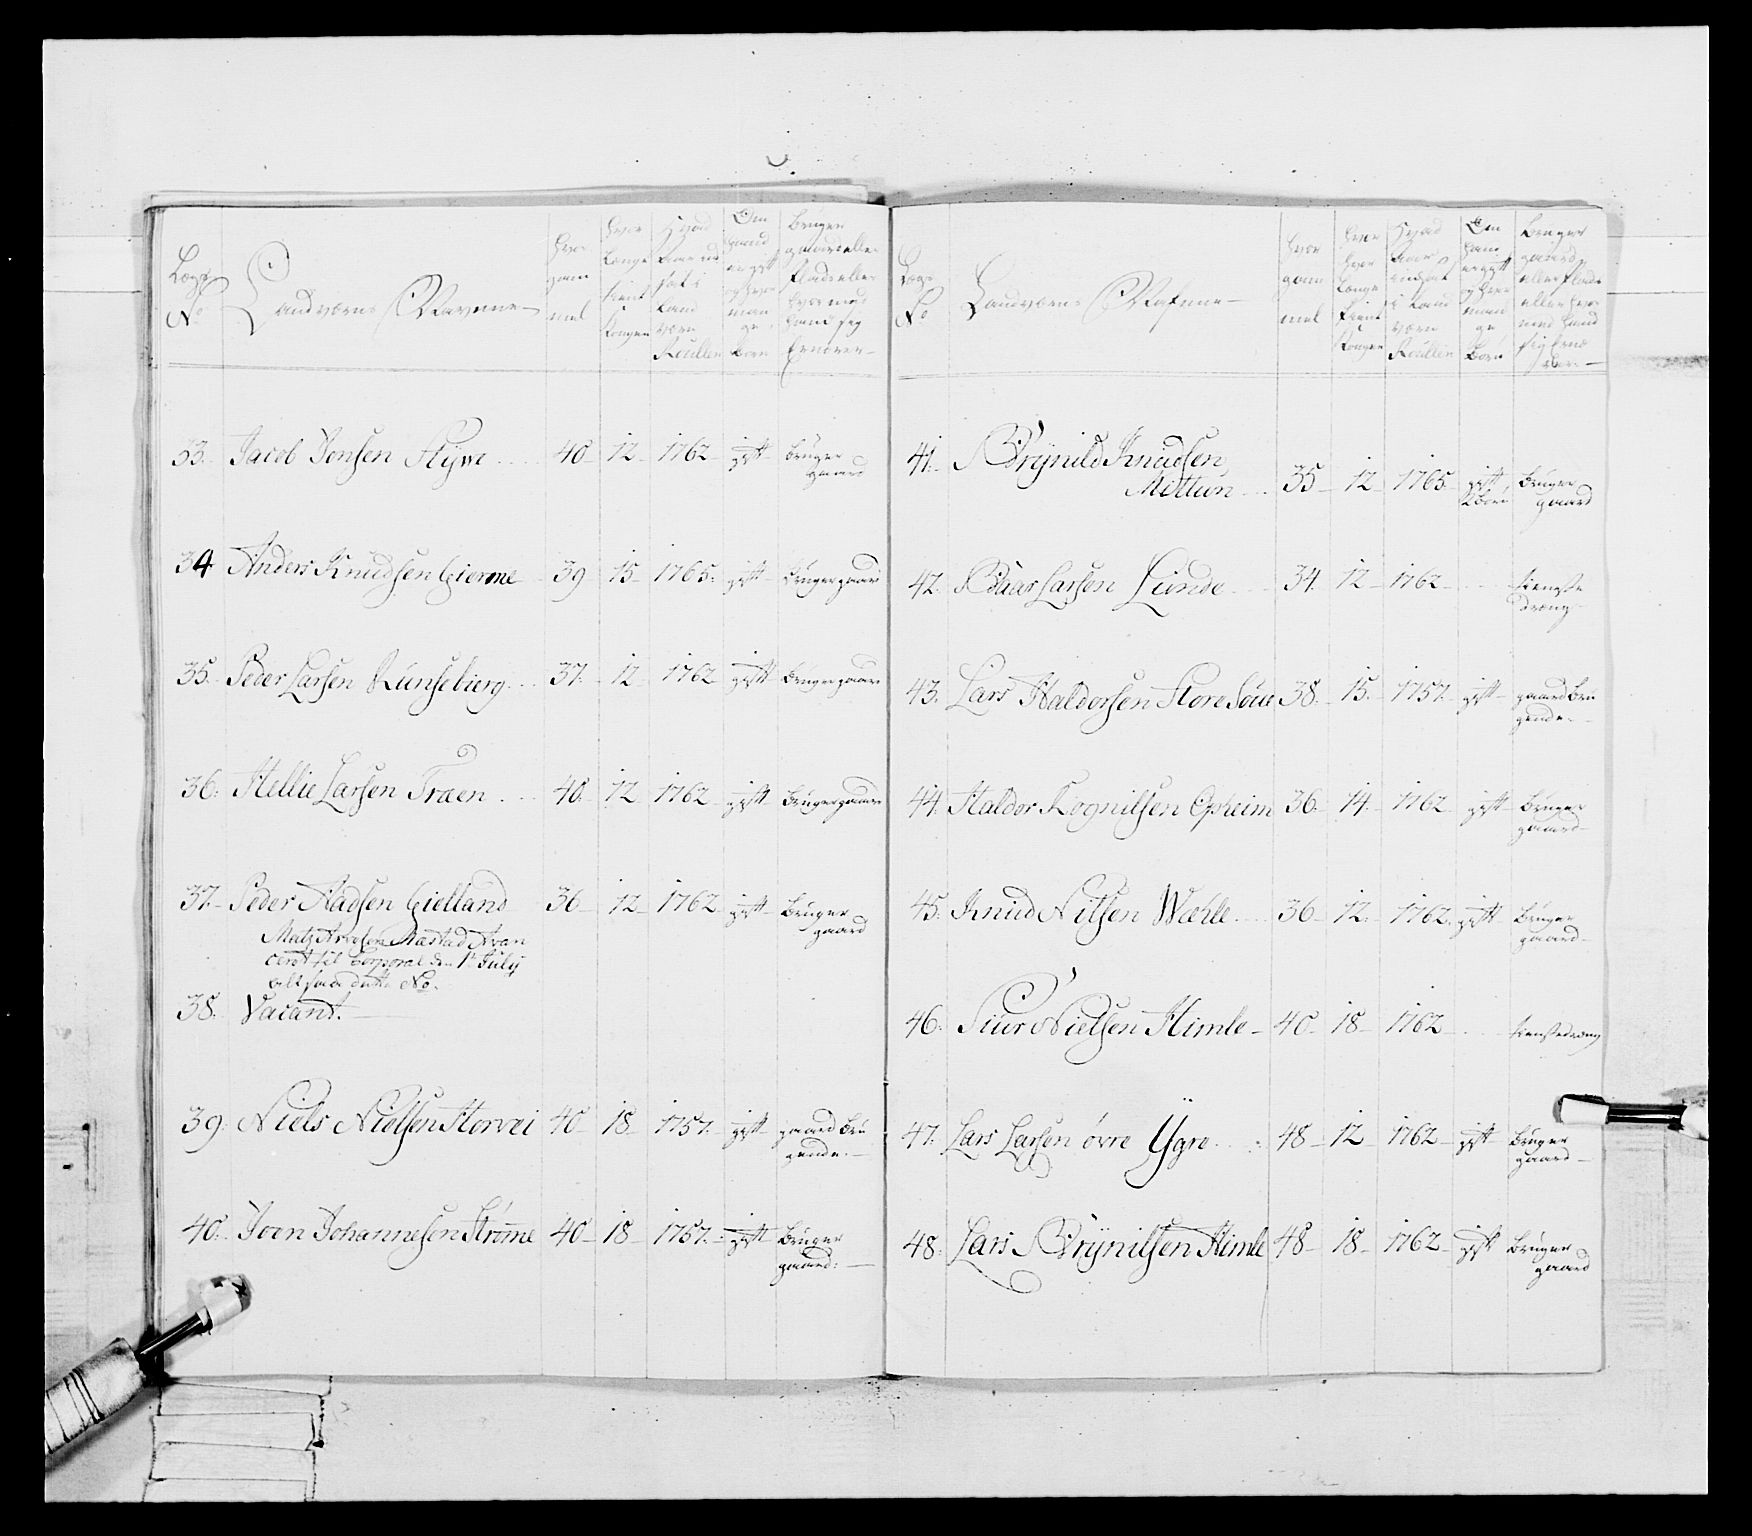 Lægs No
Landværns Navnene
hvor gam mel
hvor Længe tient Kongen
Hvad Aar ind sat i Land værn Roullen
Om hand er gift og hvor man ge Børn
Bruger gaard eller Plads eller hvor med hand sig Ernærer
33. Jacob Jonsen Flÿve 40 12 1762 gift bruger gaard
34 Anders Knudsen Gierme 39 15 1765. gift brugergaard
35. Peder Larsen Kinsebierg 37. 12 1762 gift brugergaard
36. Hellie Larsen Traen 40. 12 1762 gift brugergaard
37. Peder Aadsen Gielland 36 12 1762 gift bruger gaard
Matz Arvesen Mæstad Avan
cerot til Corporal den 1te Julÿ
altsaa dette No.
38. Vacant.
39. Niels Nielsen Horvei 40 18 1757. gift gaard bru gende.
40. Joen Johannesen Strøme 40 18 1757. gift bruger gaard.
Lægs No
Landværns Nafnene
hvor gam mel
hvor Længe tient Kongen
Hvad Aar indsat i Land værn Roullen
Om hand er gift og hvor man ge Børn
bruger gaard eller Plads eller hvor med hand sig Ernæ rer
41. Brÿnild Knudsen
Mittun 35 12 1765 gift 2 børn bruger gaard
42. Baar Larsen Lunde 34. 12 1762 tieneste dreng
43. Lars Haldorsen Store Soue 38. 15. 1757. gift gaard bru gende.
44. Haldor Rognilsen Opheim 36. 14. 1762 gift bruger gaard
45. Knud Nilsen Wæhle 36 12. 1762. gift bruger gaard
46. Siur Nielsen Himle 40 18 1762 tienstedreng
47. Lars Larsen øvre Ÿgre 48 12 1762 gift bruger gaard
48. Lars Brÿnilsen Himle 48 18 1762 gift bruger gaard